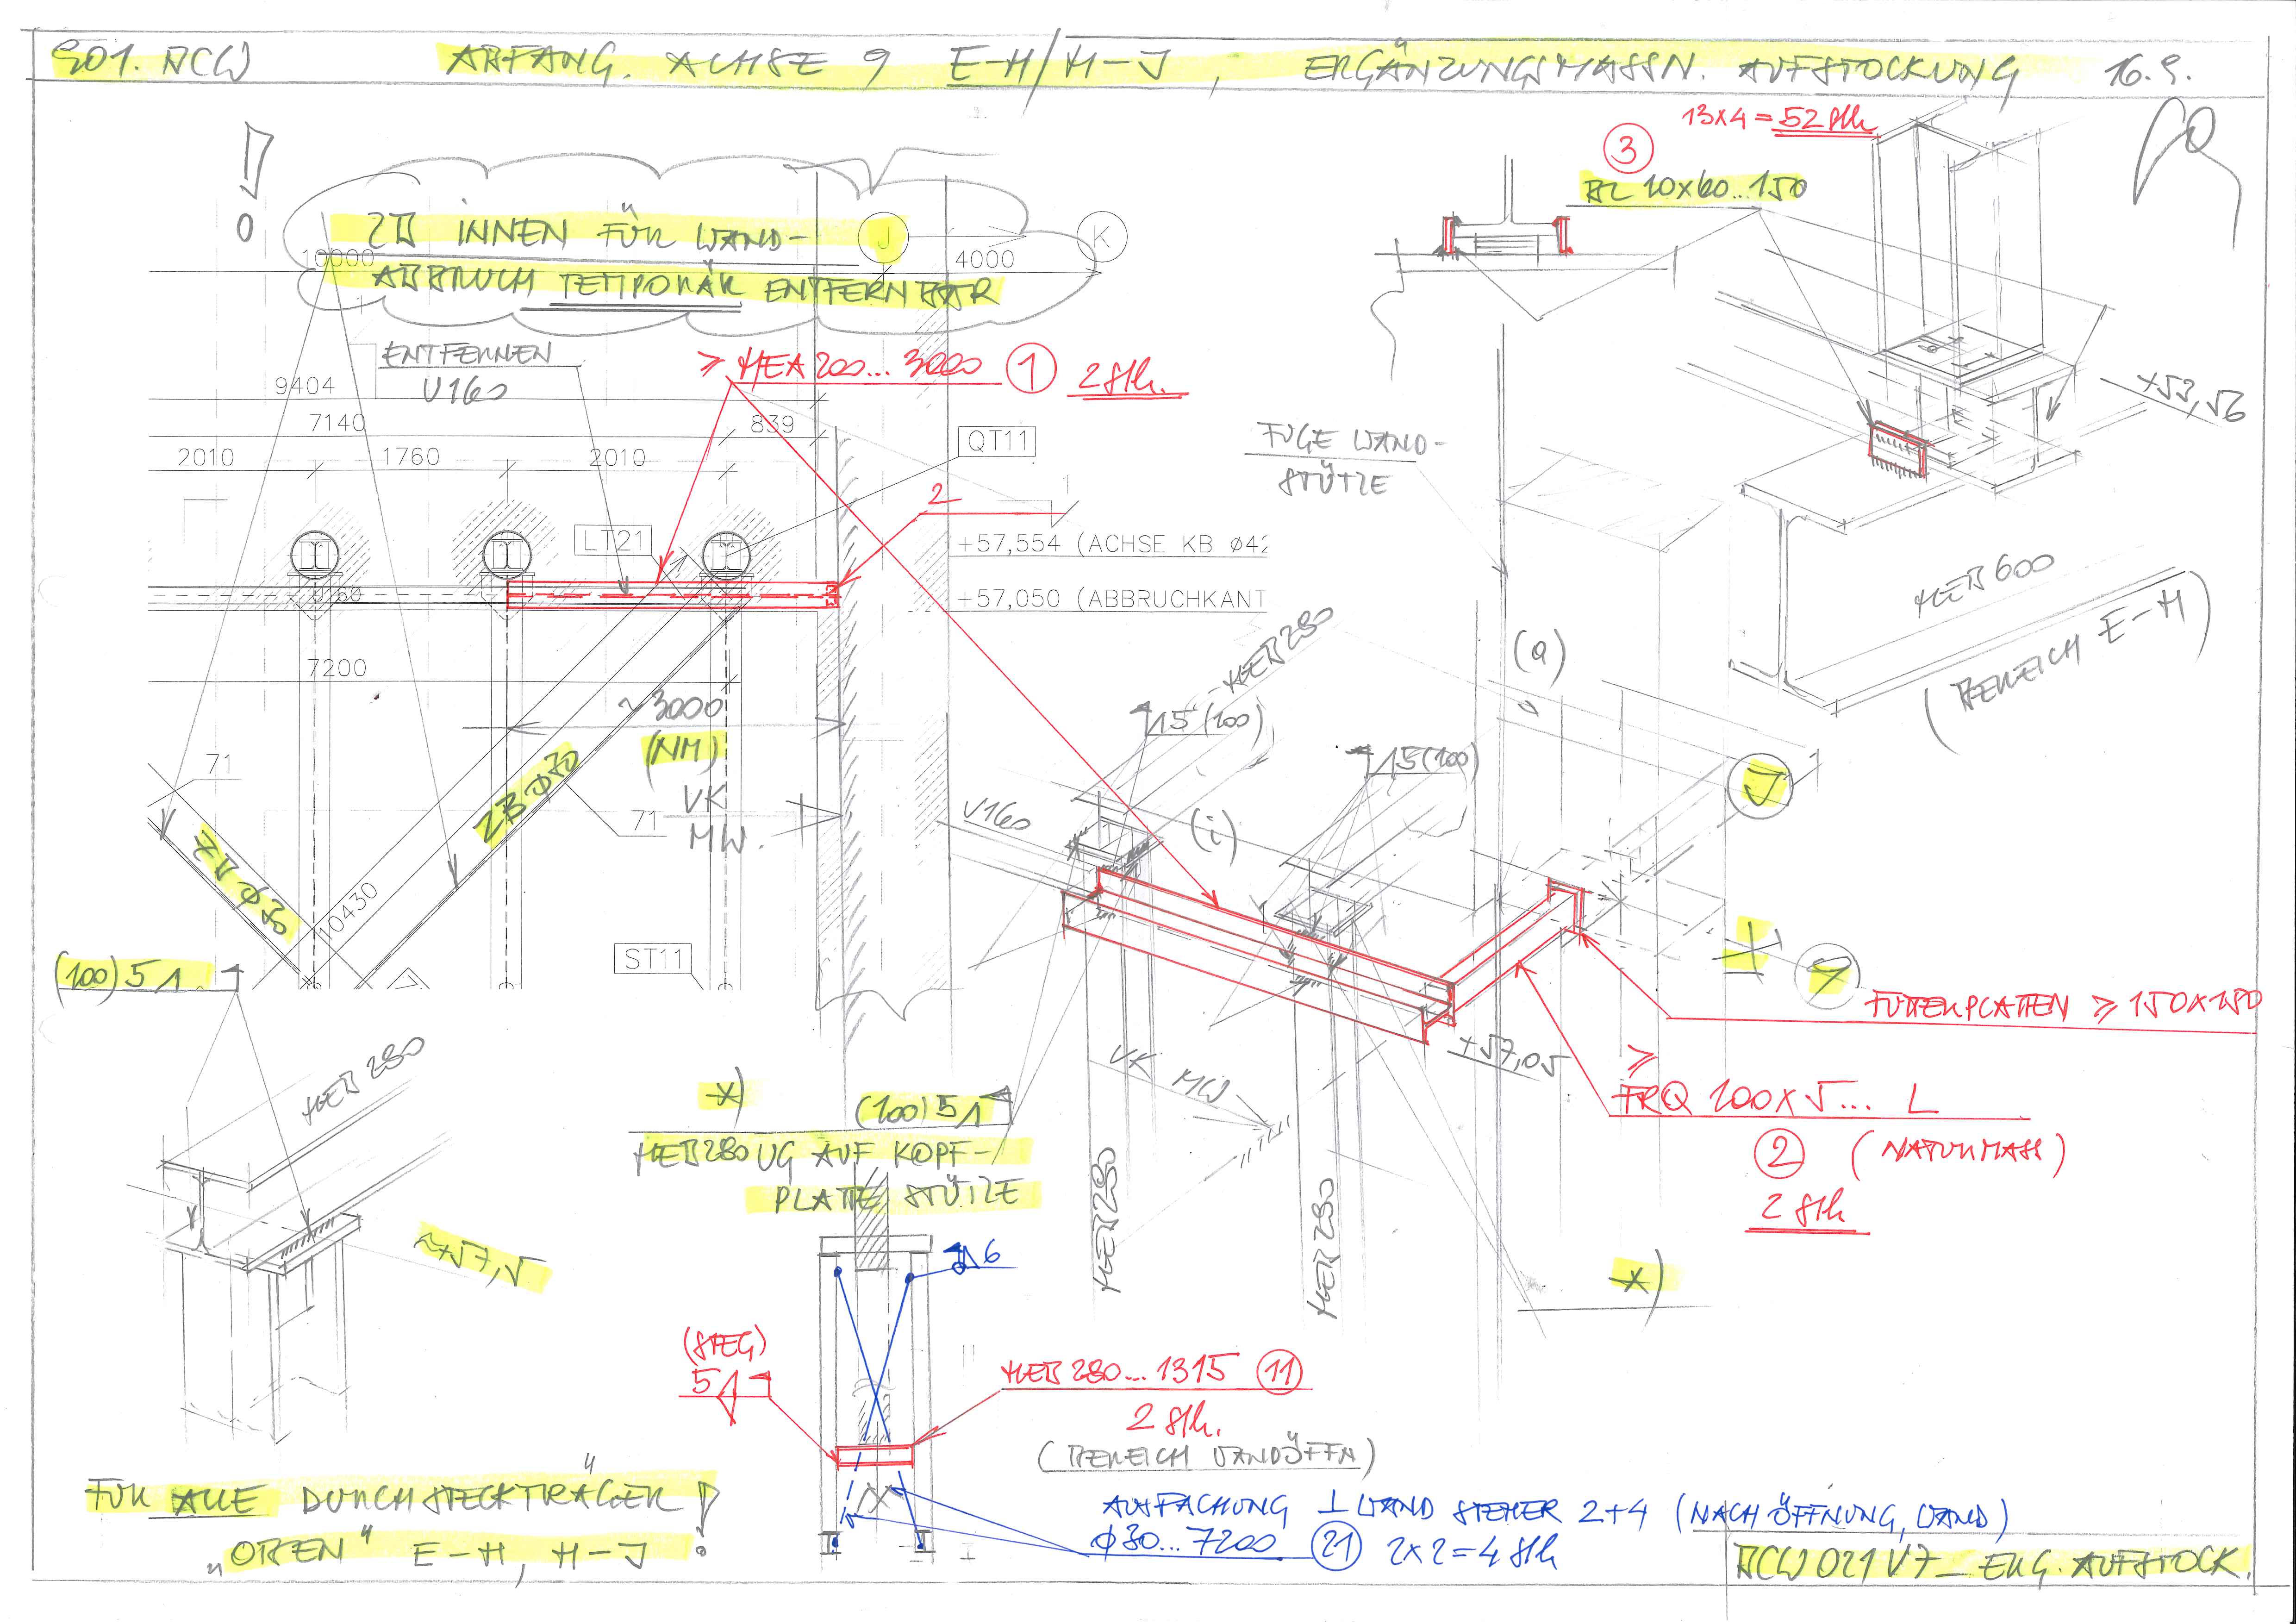 901. ACW ABFANG. ACHSE 9 E-H/H-J, ERGÄNZUNGSMASSN. AUFSTOCKUNG 16.9.
!
ZB INNEN FÜR WAND-
ABBRUCH TEMPORÄR ENTFERNBAR
J
K
10000
4000
ENTFERNEN
U160
9404
7140
839
2010
1760
2010
≥ HEA 200... 3000 1 2 Stk.
QT11
2
LT21
U160
+57,554 (ACHSE KB ø42
+57,050 (ABBRUCHKANT
7200
~3000
(NM)
VK
MW.
71
71
ZB φ70
ZB φ30
10430
ST11
(100) 5
HEB 280
~57,5
FÜR ALLE DURCHSTECKTRÄGER
„OBEN“ E-H, H-J !
13x4 = 52 Stk
3
BL 10x60...150
+53,56
HEB 600
(BEREICH E-H)
FUGE WAND-
STÜTZE
(a)
HEB 280
5 (100)
5 (100)
U160
(i)
J
9
FUTTERPLATTEN ≥ 150x150
+57,05
≥
FRQ 100x5... L
2 (NATURMASS)
2 Stk
VK MW
HEB 280
HEB 280
*)
*)
(100) 5
HEB 280 UG AUF KOPF-
PLATTE STÜTZE
6
(STEG)
5
HEB 280...1315 11
2 Stk.
(BEREICH WANDÖFFN)
AUSFACHUNG ⊥ WAND STEHER 2+4 (NACH ÖFFNUNG, WAND)
φ30...7200 21 2x2=4 Stk
ACW 021 V7_ERG. AUFSTOCK.